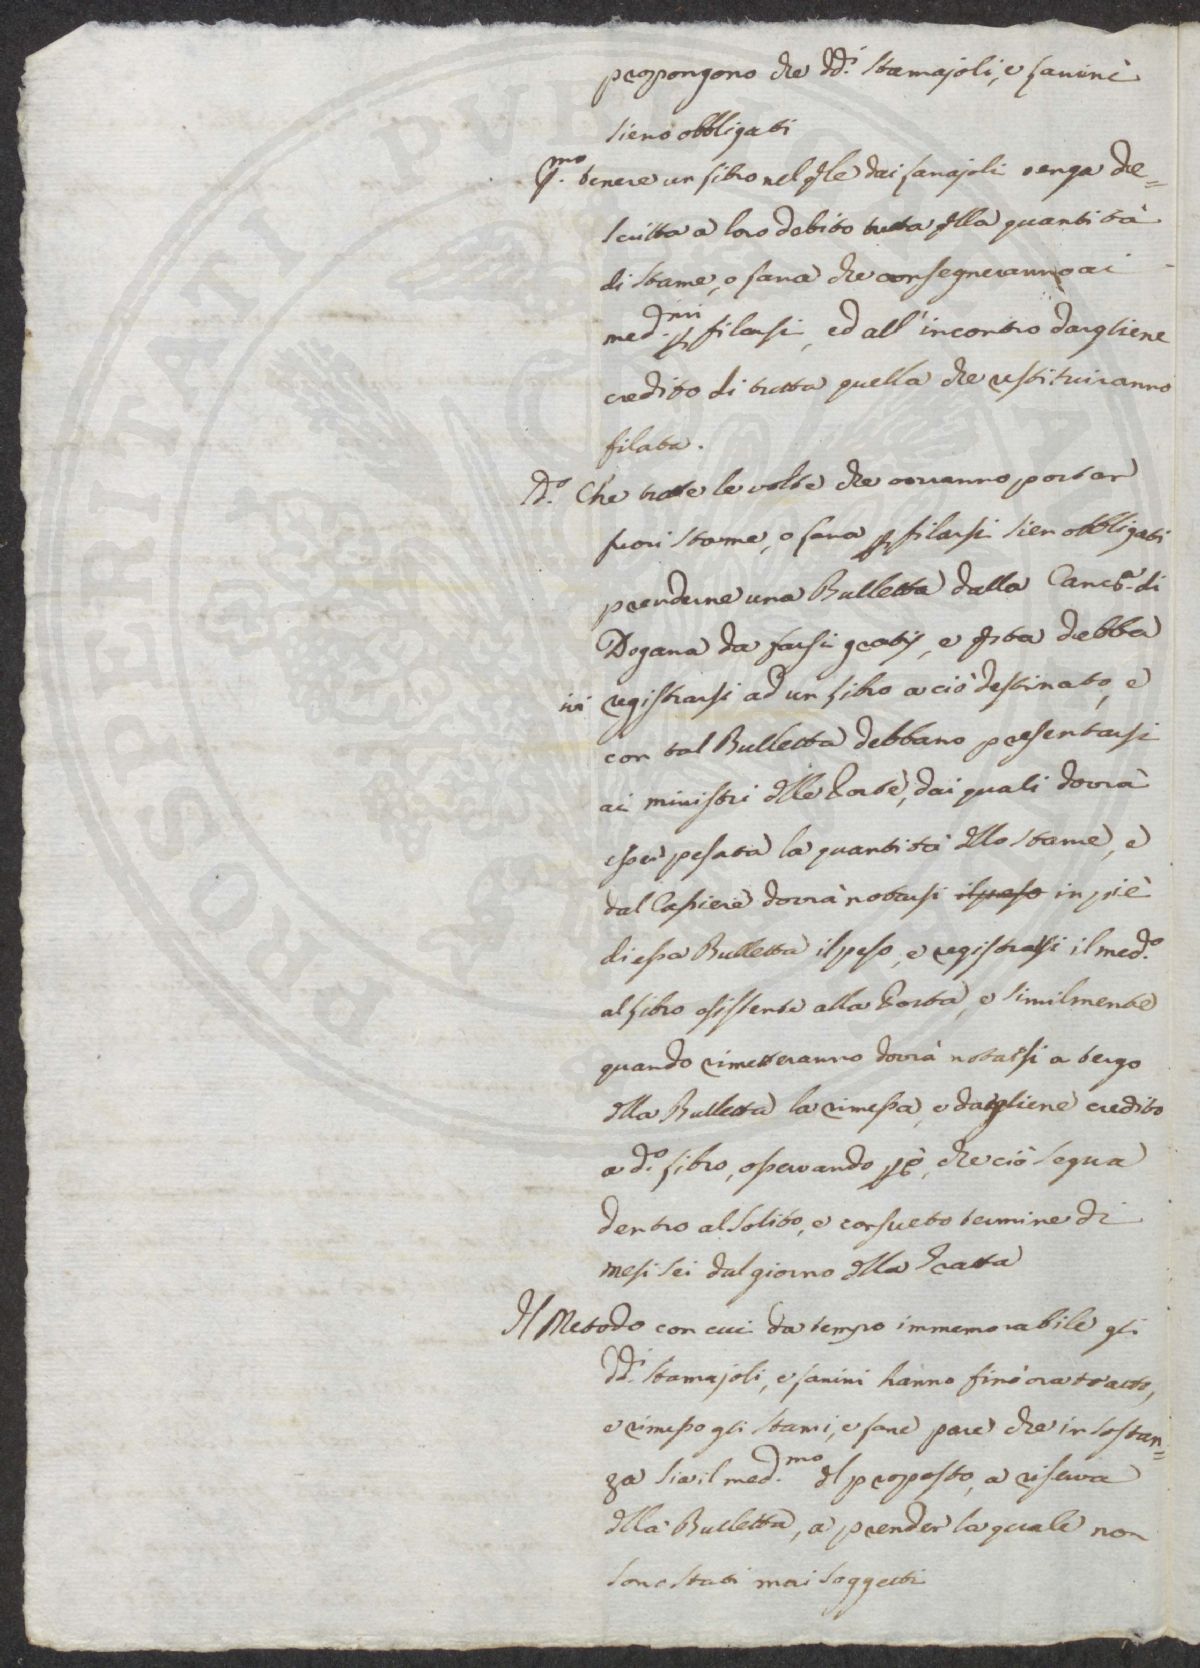 propongono che dd.i Stamajoli, e Lanini
sieno obbligati
P.mo tenere un Libro nel qle dai Lanajoli venga de=
scritta a loro debito tutta qlla quantità
di stame, o lana che consegneranno ai
med.mi p filarsi, ed all' incontro dargliene
credito di tutta quella che restituiranno
filata.
2.do Che tutte le volte che vorranno portar
fuori stame, o lana p filarsi sien obbligati
prenderne una Bulletta dalla Canc.a di
Dogana da farsi gratis, e qsta debba
ivi registrarsi ad un Libro a ciò destinato, e
con tal Bulletta debbano presentarsi
ai ministri dlle Porte, dai quali dovrà
esser pesata la quantità dllo stame, e
dal Cassiere dovrà notarsi il peso in piè
di essa Bulletta il peso, e registrarsi il med.o
al Libro esistente alla Porta, e similmente
quando rimetteranno dovrà notarsi a tergo
dlla Bulletta la rimessa, e dargliene credito
a d.o Libro, osservando pò, che ciò segua
dentro al solito, e consueto termine di
mesi sei dal giorno dlla Tratta
Il Metodo con cui da tempo immemorabile gli
dd.i Stamajoli, e Lanini hanno fino ora tratto,
e rimesso gli stami, e lane pare che in sostan=
za sia il med.mo dl proposto, a riserva
dlla Bulletta, a prender la quale non
sono stati mai soggetti